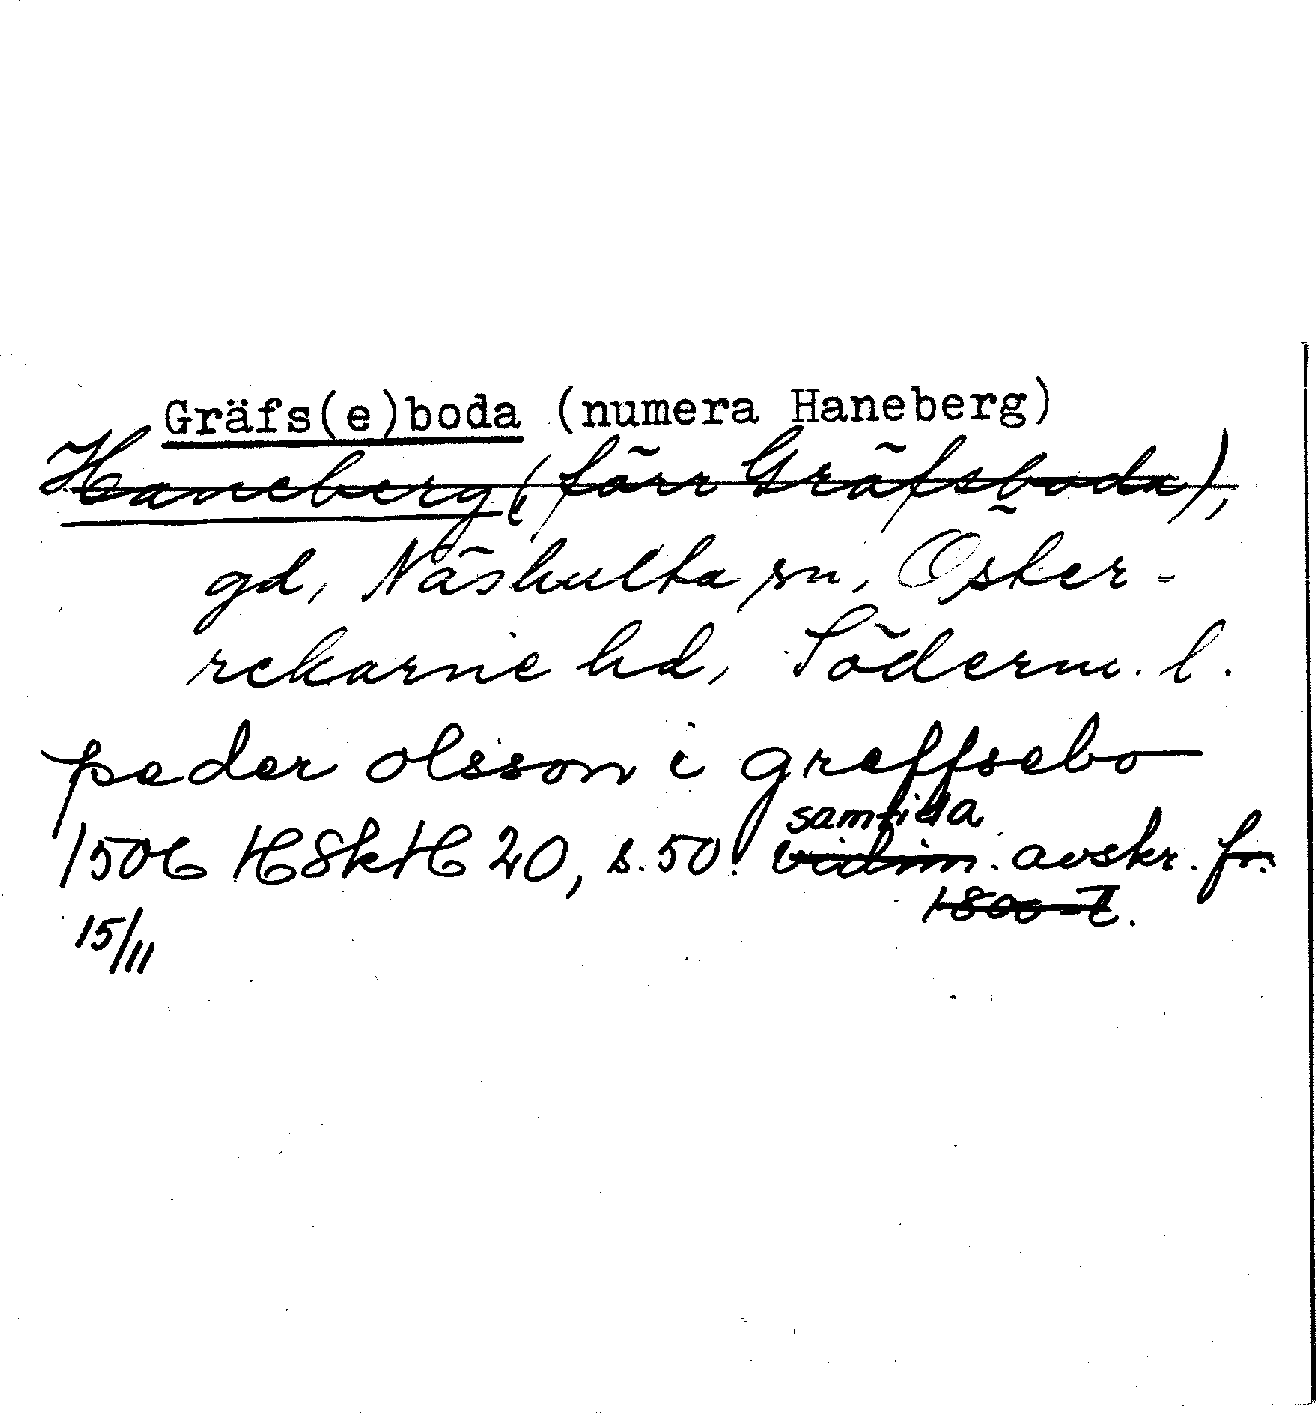 Gräfs(e)boda (numera Haneberg)
Haneberg (förr Gräfsboda),
gd, Näshulta sn, Öster-
rekarne hd, Söderm. l.
peder olsson i greffsebo
samtida
1506 HSkH 20, s. 50. vidim. avskr. fr.
1800-t.
15/11